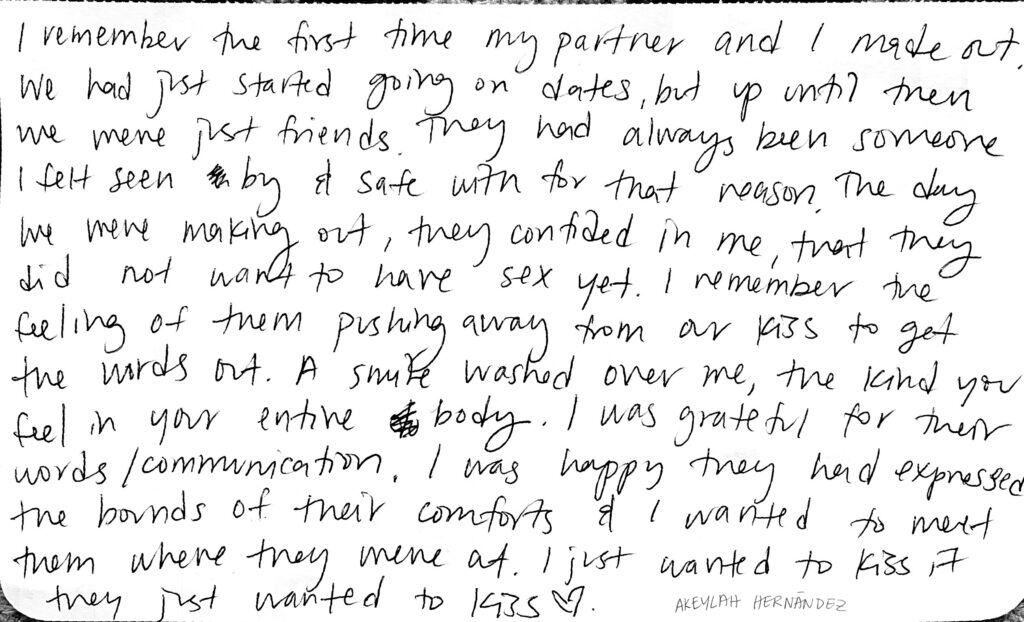 I remember the first time my partner and I made out.
We had just started going on dates, but up until then
we were just friends. They had always been someone
I felt seen by & safe with for that reason. The day
we were making out, they confided in me, that they
did not want to have sex yet. I remember the
feeling of them pushing away from our kiss to get
the words out. A smile washed over me, the kind you
feel in your entire body. I was grateful for their
words/communication. I was happy they had expressed
the bounds of their comforts & I wanted to meet
them where they were at. I just wanted to kiss if
they just wanted to kiss ♡.
AKEYLAH HERNÁNDEZ